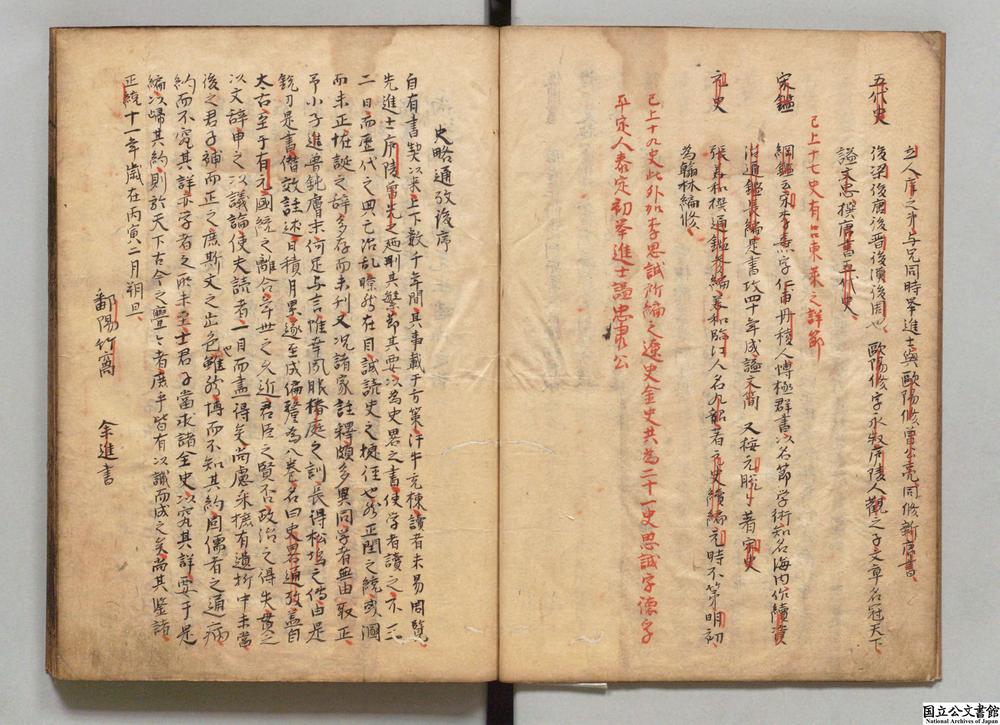 立人庠之弟与兄同時挙進士與歐陽修曽公亮同修新唐書
五代史 後梁後唐後晋後漢後周也歐陽修字永叔庐陵人觀之子文章名冠天下
謚文忠撰唐書五代史
已上十七史有吕東莱之詳節
宋鑑 綱鑑云宋李燾字仁甫丹稜人博極群書以名節学術知名海内作續資
治通鑑長編是書攷四十年成謚文簡 又按元脱〻著宋史
元史 張九韶撰通鑑續編美和臨江人名九韶著元史續編元時不第明初
為翰林編修
已上十九史此外加李思誠所編之遼史金史共為二十一史思誠字
平定人泰定初挙進士謚忠肅公
史略通攷後序
自有書契以来上下数千年間其事載于方策汗牛充棟讀者未易周覧
先進士庐陵曽先之廼刪其繁節其要以為史畧之書使学者讀之不一二
日而歴代之興亡治乱瞭然在目誠読史之捷径也然正閏之統或凅
而未正桩誕之辞多存而未刊又况諸家註釋頗多異同学者無由取正
予小子進魯鈍膚末何足与言惟幸夙服椿庭之訓長得松塢之傳由是
銃刃是書僭效註述日積月累遂至成编釐為八巻名曰史畧通攷盖自
太古至于有元國統之離合年世之久近君臣之賢否政治之得失貫之
以文辞申之以議論使夫読者一目而盡得矣尚慮采摭有遺折中未當
後之君子補而正之庶斯文之出色雖然博而不知其約固儒者之通病
約而不究其詳亦学者之所未至士君子當求諸全史以究其詳要于是
編以帰其約則於天下古今之亹〻者庶乎皆有以識而成之矣尚其鑒諸
正統十一年歳在丙寅二月朔旦
鄱陽竹窩 余進書
国立公文書館
National Archives of Japan